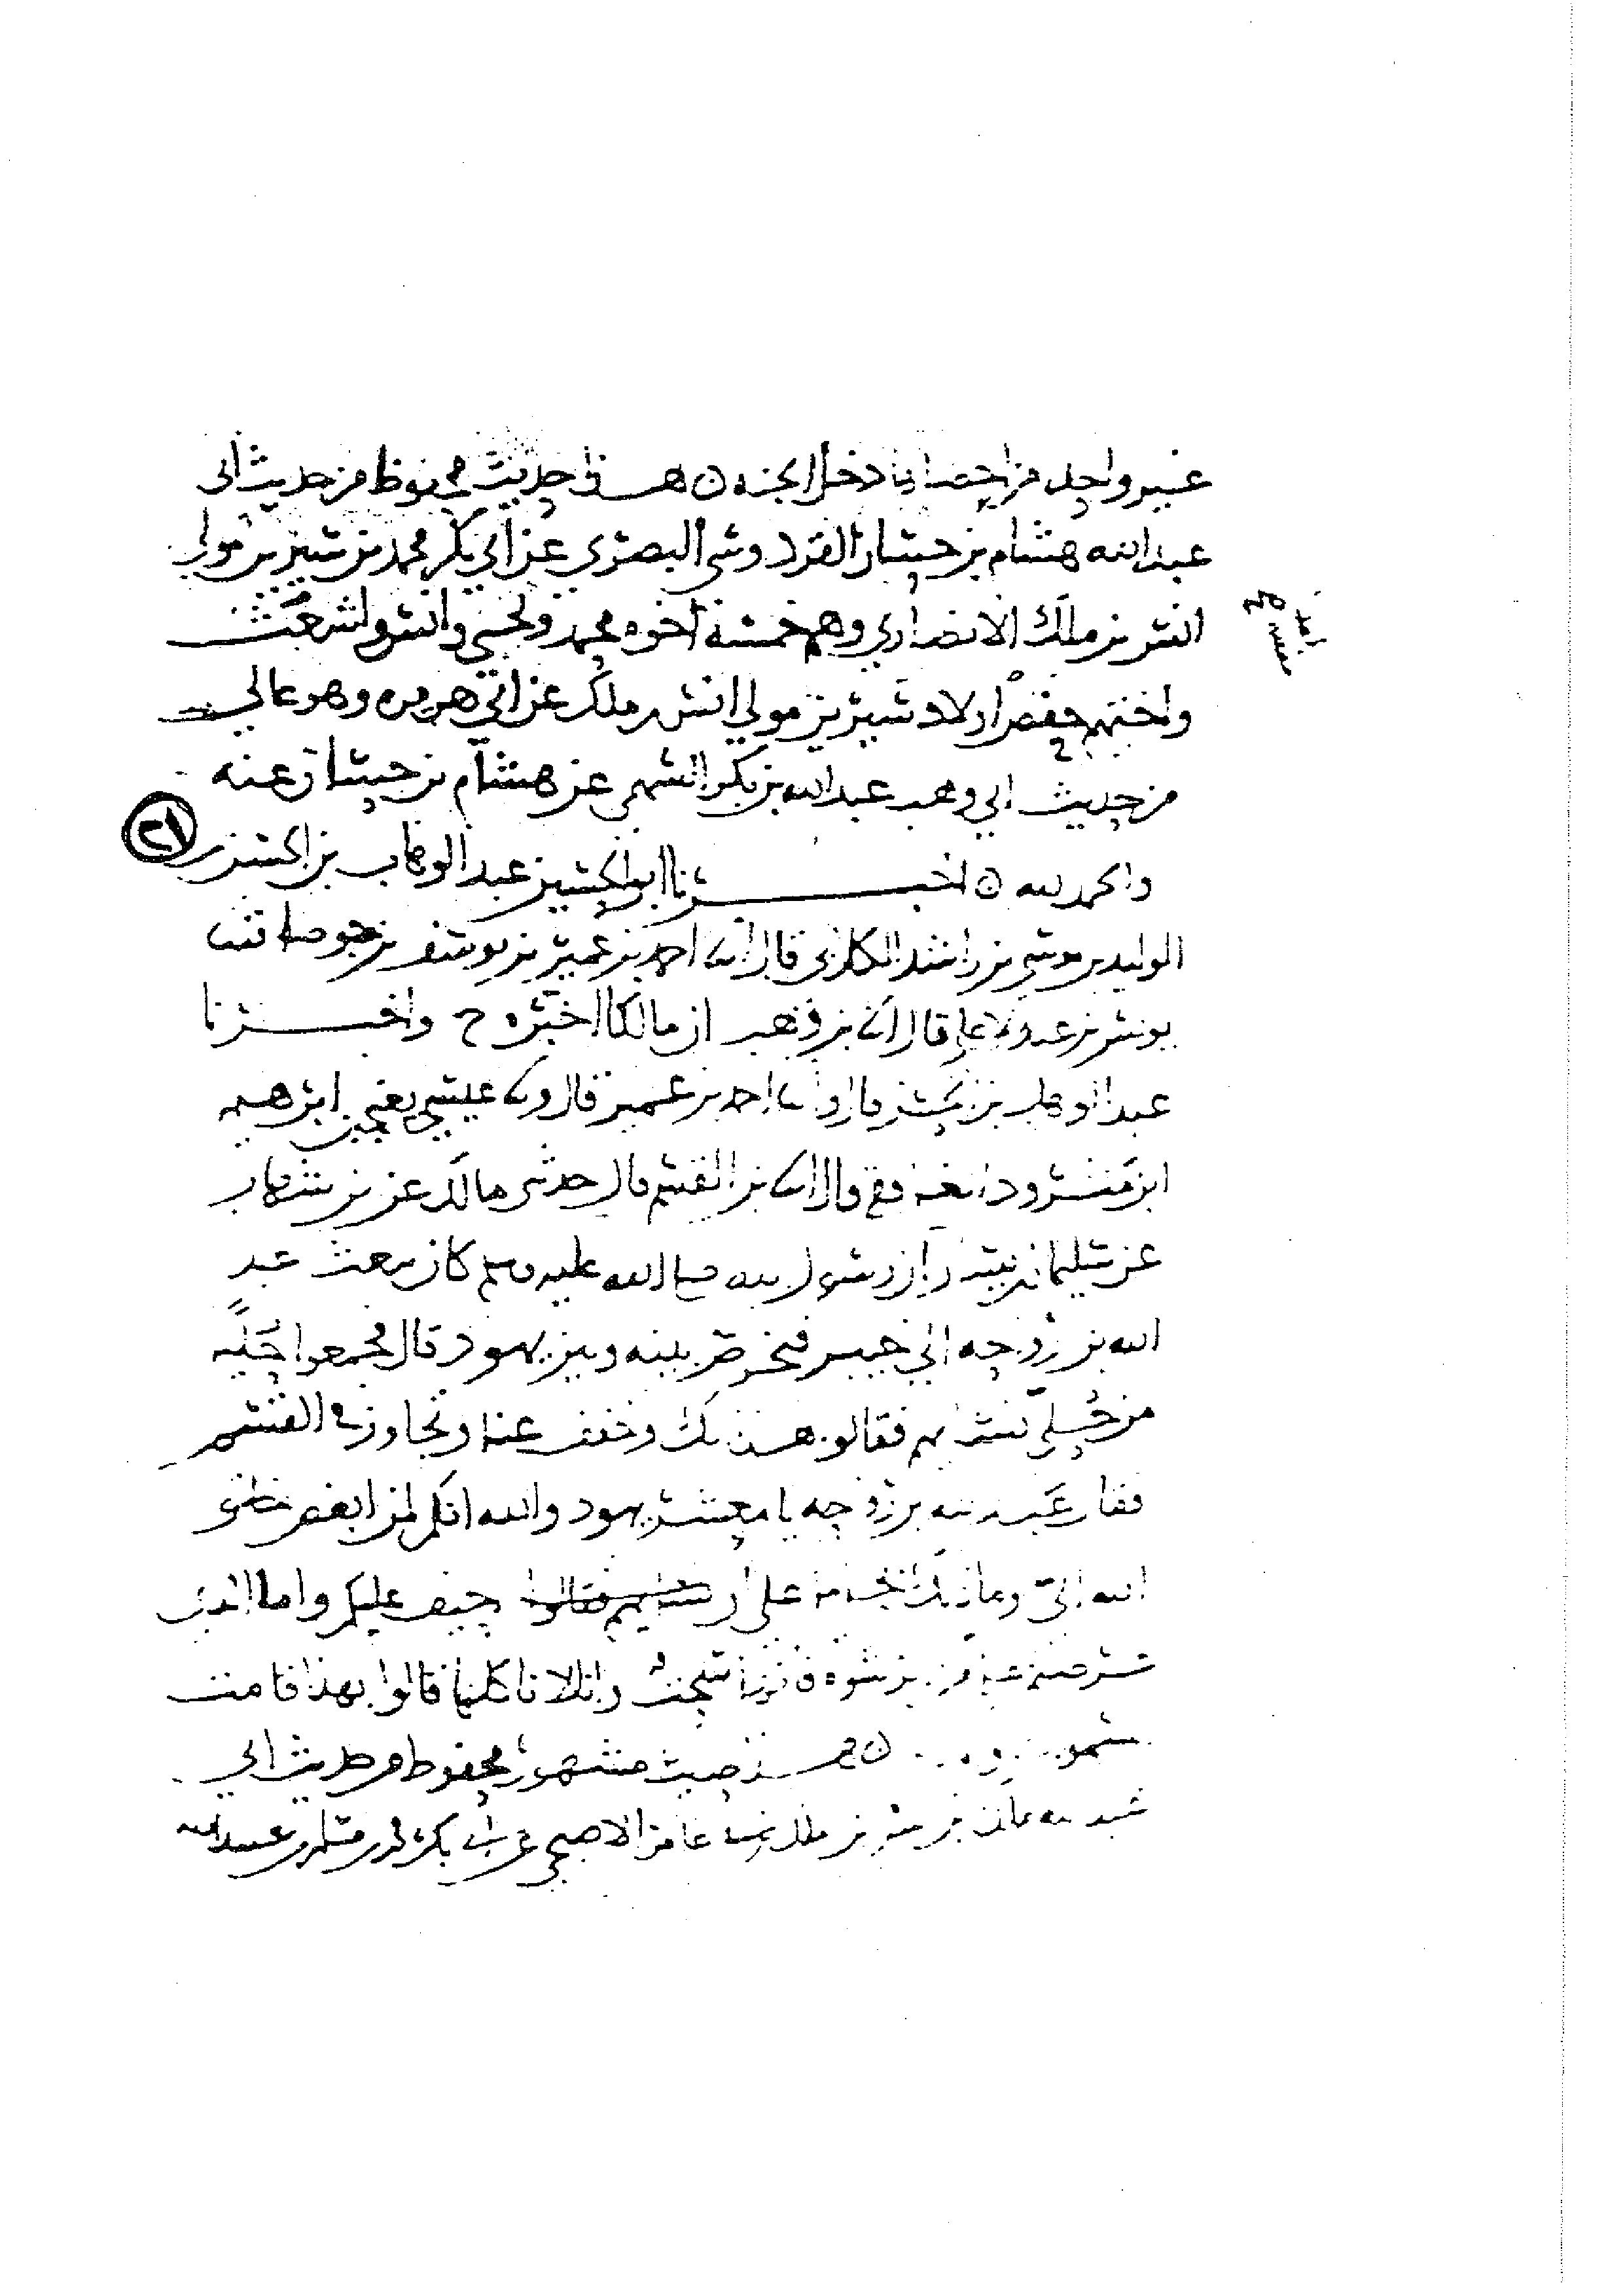 غير واحد من احصاها دخل الجنة ن هذا حديث محفوظ من حديث ابي
عبد الله هشام بن حسان القردوسي البصري عن ابي بكر محمد بن سيرين مولى
انس بن ملك الانصاري وهم خمسة اخوة محمد ويحيى وانس واشعث
واختهم حفصة اولاد سيرين مولى انس بن ملك عن ابي هريرة وهو عالي
من حديث ابي وهب عبد الله بن بكر السهمي عن هشام بن حسان عنه
والحمد لله ن اخبرنا ابو الحسين عبد الوهاب بن الحسن بن
٢١
الوليد بن موسى بن راشد الكلابي قال انا احمد بن عمير بن يوسف بن جوصا ثنا
يونس بن عبد الاعلى قال انا بن وهب ان مالكا اخبره ح واخبرنا
عبد الوهاب بن الحسن قال ونا احمد بن عمير قال ونا عيسى يعني بن ابرهيم
ابن مثرود الغافقي قال انا بن القسم قال حدثني مالك عن بن شهاب
عن سليمان بن يسار ان رسول الله صلى الله عليه وسلم كان يبعث عبد
الله بن رواحة الى خيبر فيخرص بينه وبين يهود قال فجمعوا حليا
من حلي نسائهم فقالوا هذا لك وخفف عنا وتجاوز في القسم
فقال عبد الله بن رواحة يا معشر يهود والله انكم لمن ابغض خلق
الله الي وما ذلك بحاملي على ان احيف عليكم واما الذي
عرضتم علي من الرشوة فانها سحت وانا لا ناكلها قالوا بهذا قامت
السموات والارض ن هذا حديث مشهور محفوظ من حديث ابي
عبد الله مالك بن انس بن ملك بن ابي عامر الاصبحي عن ابي بكر محمد بن مسلم بن عبيد الله